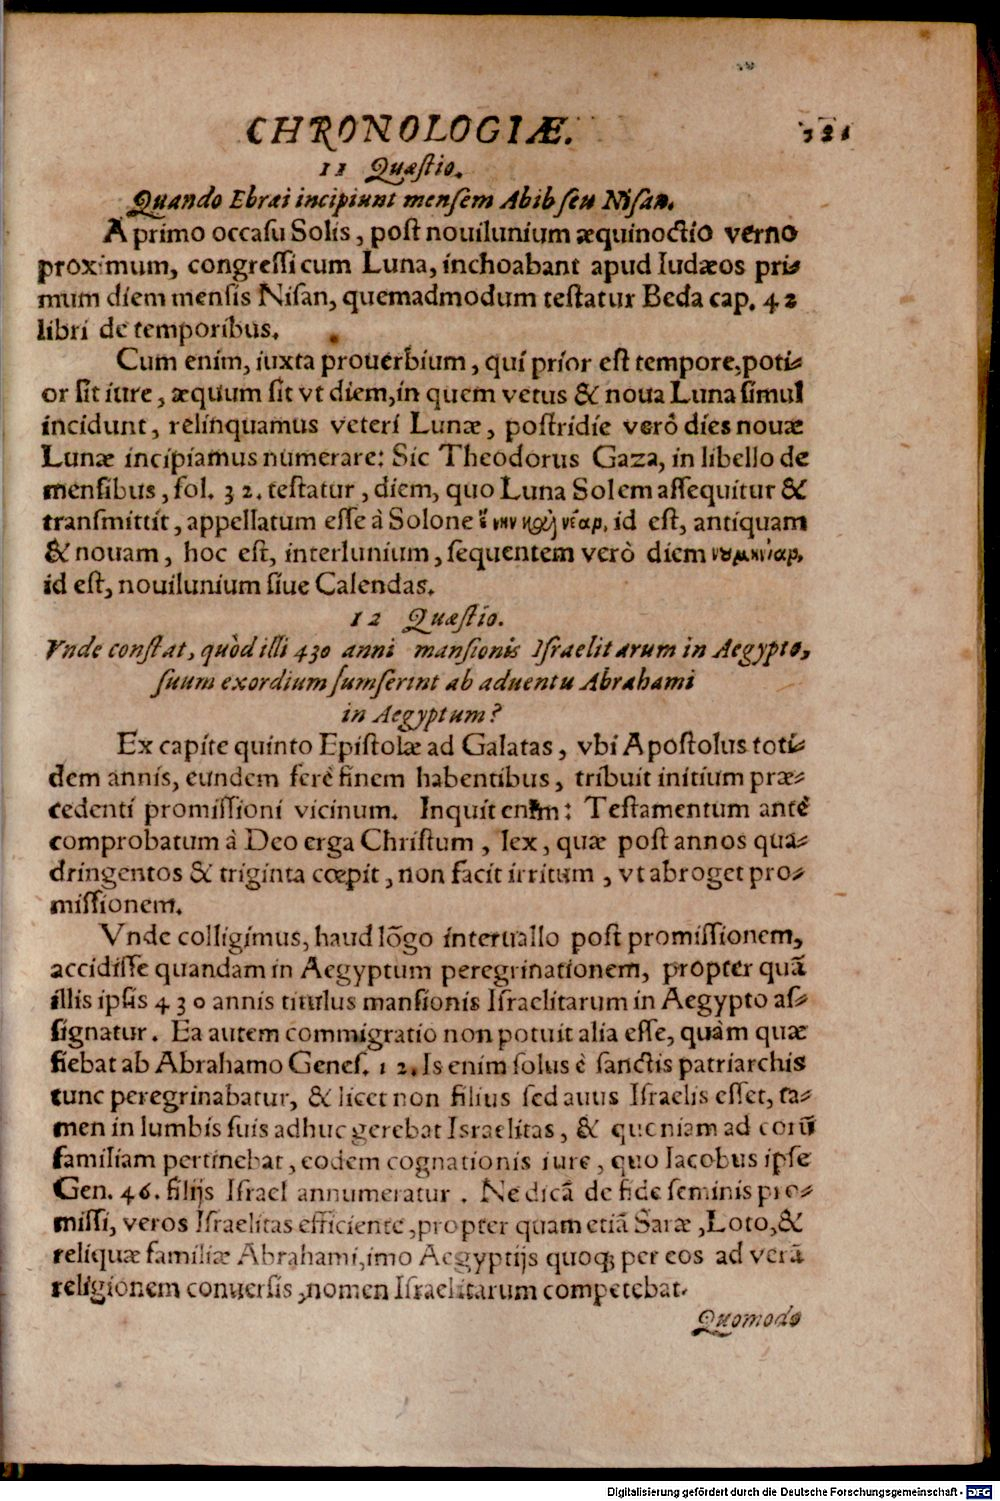 CHRONOLOGIÆ. 121
11 Quæſtio.
Quando Ebræi incipiunt menſem Abib ſeu Niſan.
A primo occaſu Solis, poſt nouilunium æquinoctio verno
proximum, congreſſi cum Luna, inchoabant apud Iudæos pri-
mum diem menſis Niſan, quemadmodum teſtatur Beda cap. 42
libri de temporibus.
Cum enim, iuxta prouerbium, qui prior eſt tempore, poti-
or ſit iure, æquum ſit vt diem, in quem vetus & noua Luna ſimul
incidunt, relinquamus veteri Lunæ, poſtridie verò dies nouæ
Lunæ incipiamus numerare: Sic Theodorus Gaza, in libello de
menſibus, fol. 32. teſtatur, diem, quo Luna Solem aſſequitur &
tranſmittit, appellatum eſſe à Solone id eſt, antiquam
& nouam, hoc eſt, interlunium, ſequentem verò diem
id eſt, nouilunium ſiue Calendas.
12 Quæſtio.
Vnde conſtat, quòd illi 430 anni manſionis Iſraelitarum in Aegypto,
ſuum exordium ſumſerint ab aduentu Abrahami
in Aegyptum?
Ex capite quinto Epiſtolæ ad Galatas, vbi Apoſtolus toti-
dem annis, eundem ferè finem habentibus, tribuit initium præ-
cedenti promiſſioni vicinum. Inquit enim: Teſtamentum antè
comprobatum à Deo erga Chriſtum, lex, quæ poſt annos qua-
dringentos & triginta cœpit, non facit irritum, vt abroget pro-
miſſionem.
Vnde colligimus, haud lõgo interuallo poſt promiſſionem,
accidiſſe quandam in Aegyptum peregrinationem, propter quã
illis ipſis 430 annis titulus manſionis Iſraelitarum in Aegypto aſ-
ſignatur. Ea autem commigratio non potuit alia eſſe, quàm quæ
fiebat ab Abrahamo Geneſ. 12. Is enim ſolus è ſanctis patriarchis
tunc peregrinabatur, & licet non filius ſed auus Iſraelis eſſet, ta-
men in lumbis ſuis adhuc gerebat Israelitas, & quoniam ad eorũ
familiam pertinebat, eodem cognationis iure, quo Iacobus ipſe
Gen. 46. filijs Iſrael annumeratur. Ne dicã de fide ſeminis pro-
miſſi, veros Iſraelitas efficiente, propter quam etiã Saræ, Loto, &
reliquæ familiæ Abrahami, imo Aegyptijs quoq; per eos ad verã
religionem conuerſis, nomen Iſraelitarum competebat.
Quomodo
Digitalisierung gefördert durch die Deutsche Forschungsgemeinschaft - DFG